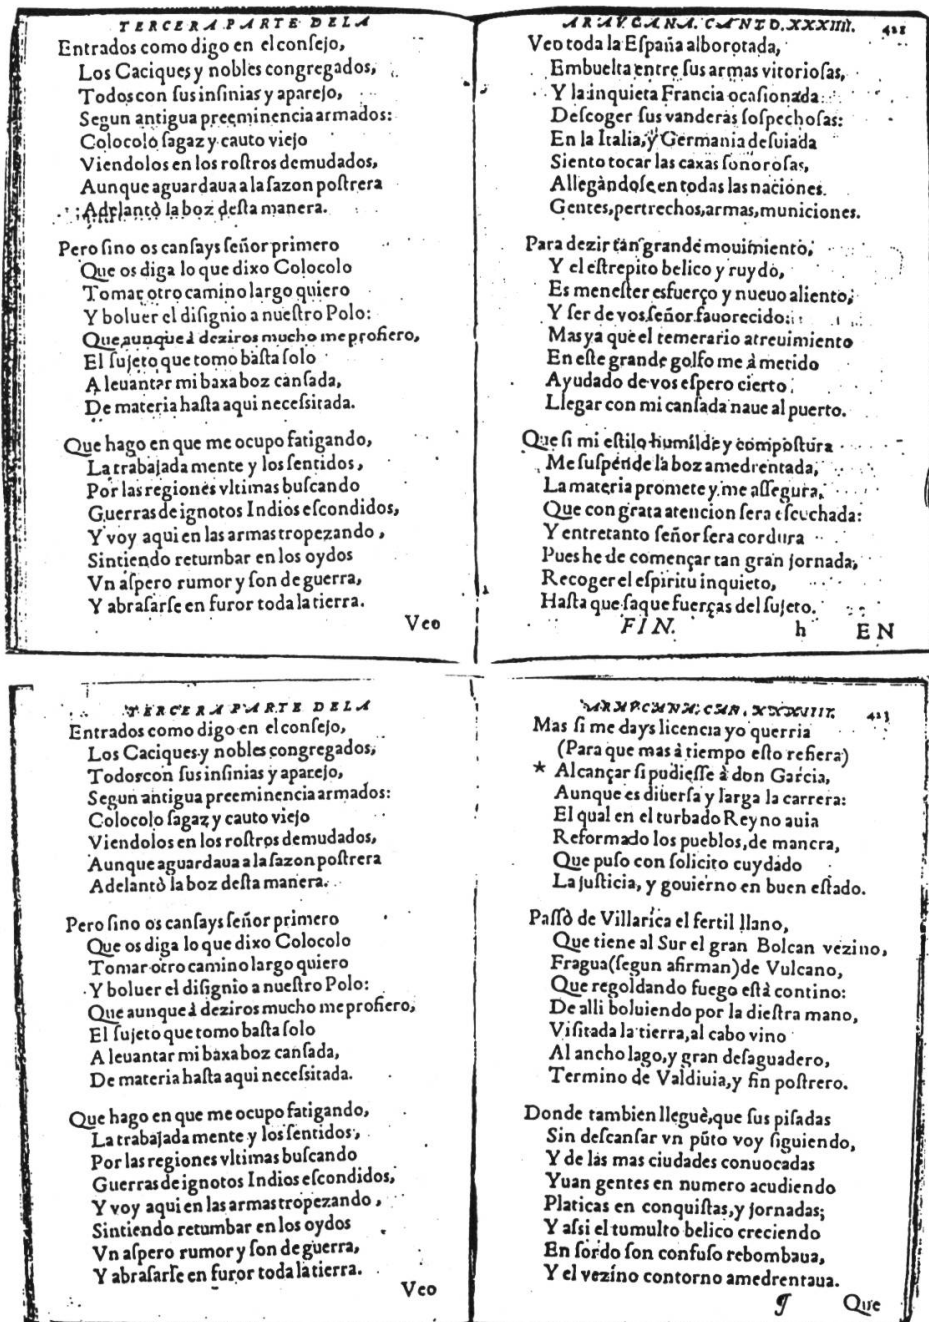 TERCERA PARTE DE LA
Entrados como digo en el conſejo,
Los Caciques y nobles congregados,
Todos con ſus inſinias y aparejo,
Segun antigua preeminencia armados:
Colocolo ſagaz y cauto viejo
Viendolos en los roſtros demudados,
Aunque aguardaua a la ſazon poſtrera
Adelantò la boz deſta manera.
Pero ſino os canſays ſeñor primero
Que os diga lo que dixo Colocolo
Tomar otro camino largo quiero
Y boluer el diſignio a nueſtro Polo:
Que aunque à deziros mucho me profiero,
El ſujeto que tomo baſta ſolo
A leuantar mi baxa boz canſada,
De materia haſta aqui neceſsitada.
Que hago en que me ocupo fatigando,
La trabajada mente y los ſentidos,
Por las regiones vltimas buſcando
Guerras de ignotos Indios eſcondidos,
Y voy aqui en las armas tropezando,
Sintiendo retumbar en los oydos
Vn aſpero rumor y ſon de guerra,
Y abraſarſe en furor toda la tierra.
Veo
ARAVCANA. CANTO. XXXIIII. 421
Veo toda la Eſpaña alborotada,
Embuelta entre ſus armas vitorioſas,
Y la inquieta Francia ocaſionada
Deſcoger ſus vanderas ſoſpechoſas:
En la Italia, y Germania deſuiada
Siento tocar las caxas ſonoroſas,
Allegàndoſe en todas las naciones.
Gentes, pertrechos, armas, municiones.
Para dezir tan grande mouimiento,
Y el eſtrepito belico y ruydo,
Es meneſter esfuerço y nueuo aliento,
Y ſer de vos ſeñor fauorecido:
Mas ya que el temerario atreuimiento
En eſte grande golfo me à metido
Ayudado de vos eſpero cierto
Llegar con mi canſada naue al puerto.
Que ſi mi eſtilo humilde y compoſtura
Me ſuſpende la boz amedrentada,
La materia promete y me aſſegura,
Que con grata atencion ſera eſcuchada:
Y entretanto ſeñor ſera cordura
Pues he de començar tan gran jornada,
Recoger el eſpiritu inquieto,
Haſta que ſaque fuerças del ſujeto.
FIN. h EN
TERCERA PARTE DE LA
Entrados como digo en el conſejo,
Los Caciques y nobles congregados,
Todos con ſus inſinias y aparejo,
Segun antigua preeminencia armados:
Colocolo ſagaz y cauto viejo
Viendolos en los roſtros demudados,
Aunque aguardaua a la ſazon poſtrera
Adelantò la boz deſta manera.
Pero ſino os canſays ſeñor primero
Que os diga lo que dixo Colocolo
Tomar otro camino largo quiero
Y boluer el diſignio a nueſtro Polo:
Que aunque à deziros mucho me profiero,
El ſujeto que tomo baſta ſolo
A leuantar mi baxa boz canſada,
De materia haſta aqui neceſsitada.
Que hago en que me ocupo fatigando,
La trabajada mente y los ſentidos,
Por las regiones vltimas buſcando
Guerras de ignotos Indios eſcondidos,
Y voy aqui en las armas tropezando,
Sintiendo retumbar en los oydos
Vn aſpero rumor y ſon de guerra,
Y abraſarſe en furor toda la tierra.
Veo
ARAVCANA. CAN. XXXVIIII. 423
Mas ſi me days licencia yo querria
(Para que mas à tiempo eſto refiera)
* Alcançar ſi pudieſſe à don Garcia,
Aunque es diuerſa y larga la carrera:
El qual en el turbado Reyno auia
Reformado los pueblos, de manera,
Que puſo con ſolicito cuydado
La juſticia, y gouierno en buen eſtado.
Paſſò de Villarica el fertil llano,
Que tiene al Sur el gran Bolcan vezino,
Fragua (ſegun afirman) de Vulcano,
Que regoldando fuego eſtà contino:
De alli boluiendo por la dieſtra mano,
Viſitada la tierra, al cabo vino
Al ancho lago, y gran deſaguadero,
Termino de Valdiuia, y fin poſtrero.
Donde tambien lleguè, que ſus piſadas
Sin deſcanſar vn pũto voy ſiguiendo,
Y de las mas ciudades conuocadas
Yuan gentes en numero acudiendo
Platicas en conquiſtas, y jornadas;
Y aſsi el tumulto belico creciendo
En ſordo ſon confuſo rebombaua,
Y el vezino contorno amedrentaua.
¶ Que